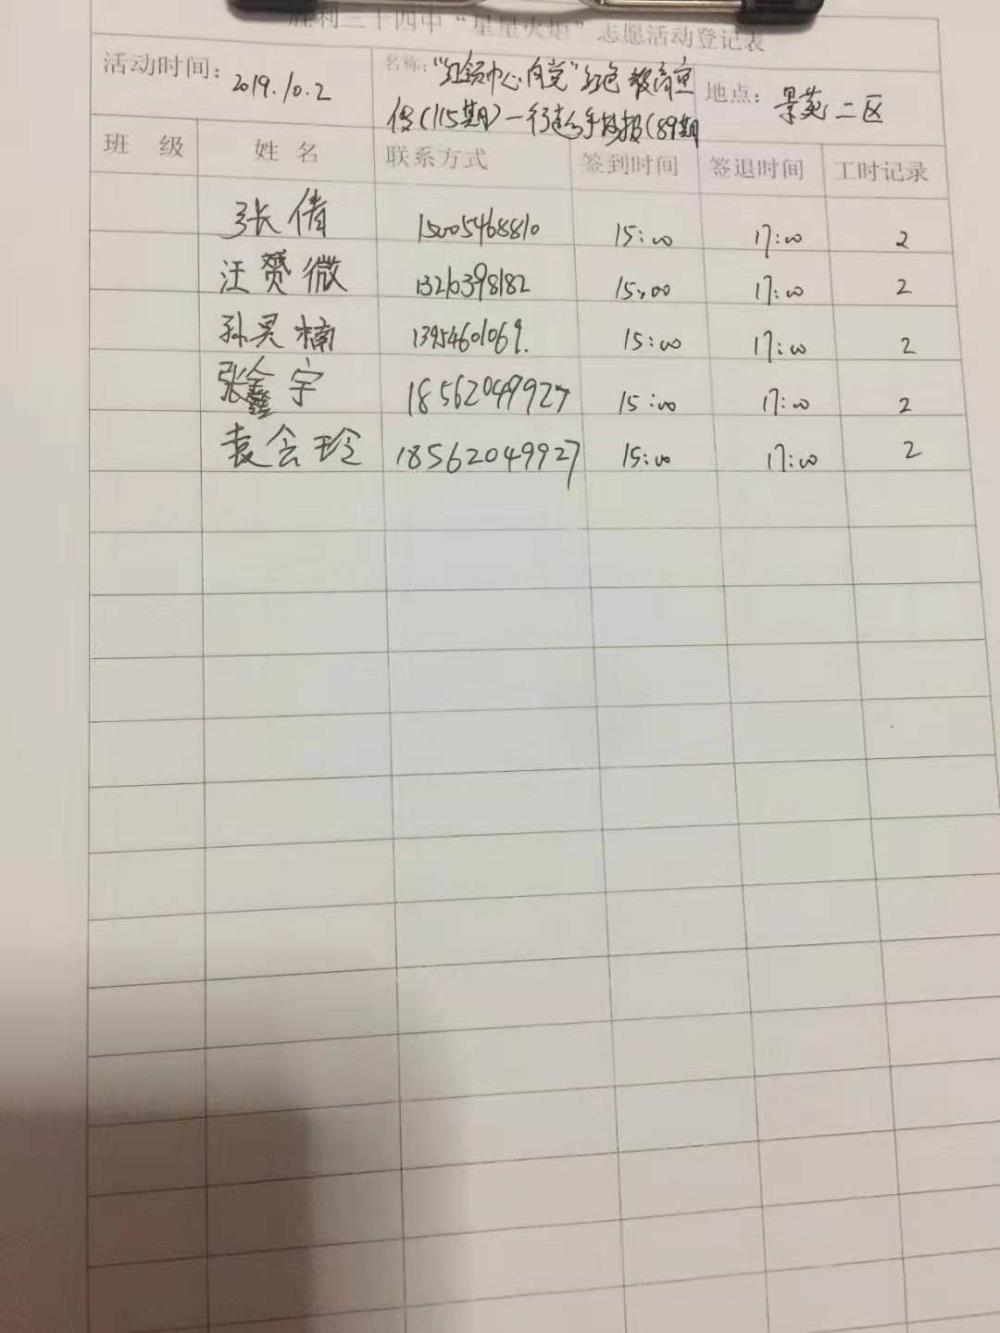 胜利三十四中“星星火炬”志愿活动登记表
活动时间: 2019.10.2 名称: “红领巾心向党”红色教育宣 地点: 景苑二区
传(115期)一行进手抄报(89期
班 级 姓 名 联系方式 签到时间 签退时间 工时记录
张倩 15005468810 15:00 17:00 2
汪赟微 13210398182 15:00 17:00 2
孙昊楠 13954601069. 15:00 17:00 2
张鑫宇 18562049927 15:00 17:00 2
袁会玲 18562049927 15:00 17:00 2